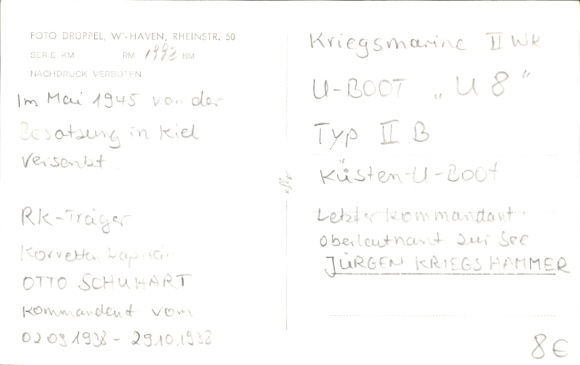 FOTO DRÖPPEL, W'HAVEN, RHEINSTR. 50
SERIE KM RM 1993 BM
NACHDRUCK VERBOTEN
Im Mai 1945 von der
Besatzung in Kiel
versenkt.
RK-Träger
Korvetten Kapitän
OTTO SCHUHART
Kommandant vom
02.09.1938 - 29.10.1938
Kriegsmarine II Wk
U-BOOT „U 8"
Typ II B
Küsten-U-Boot
Letzter Kommandant
Oberleutnant zur See
JÜRGEN KRIEGSHAMMER
8€